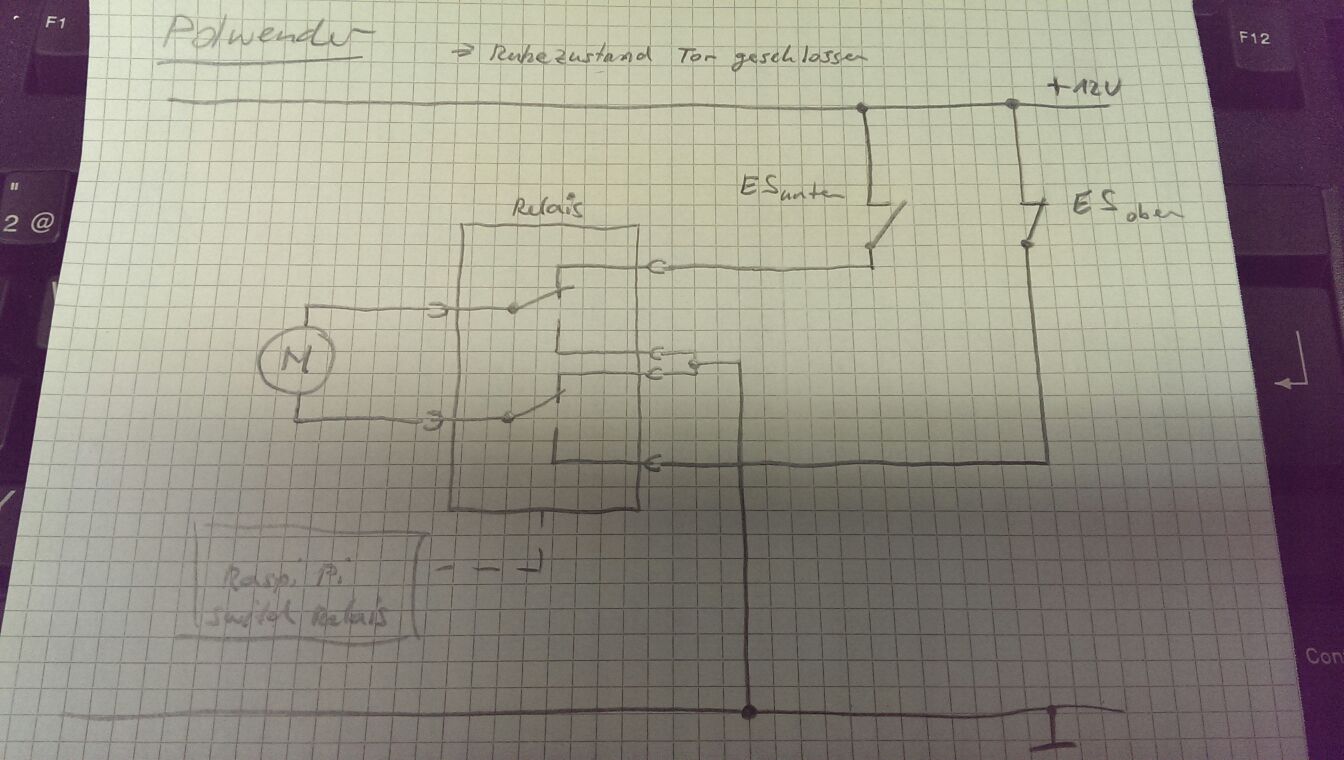 F1
F12
Polwender
→ Ruhezustand Tor geschlossen
+12V
"
2 @
ES unten
ES oben
Relais
M
Raspi Pi
switch Relais
Con